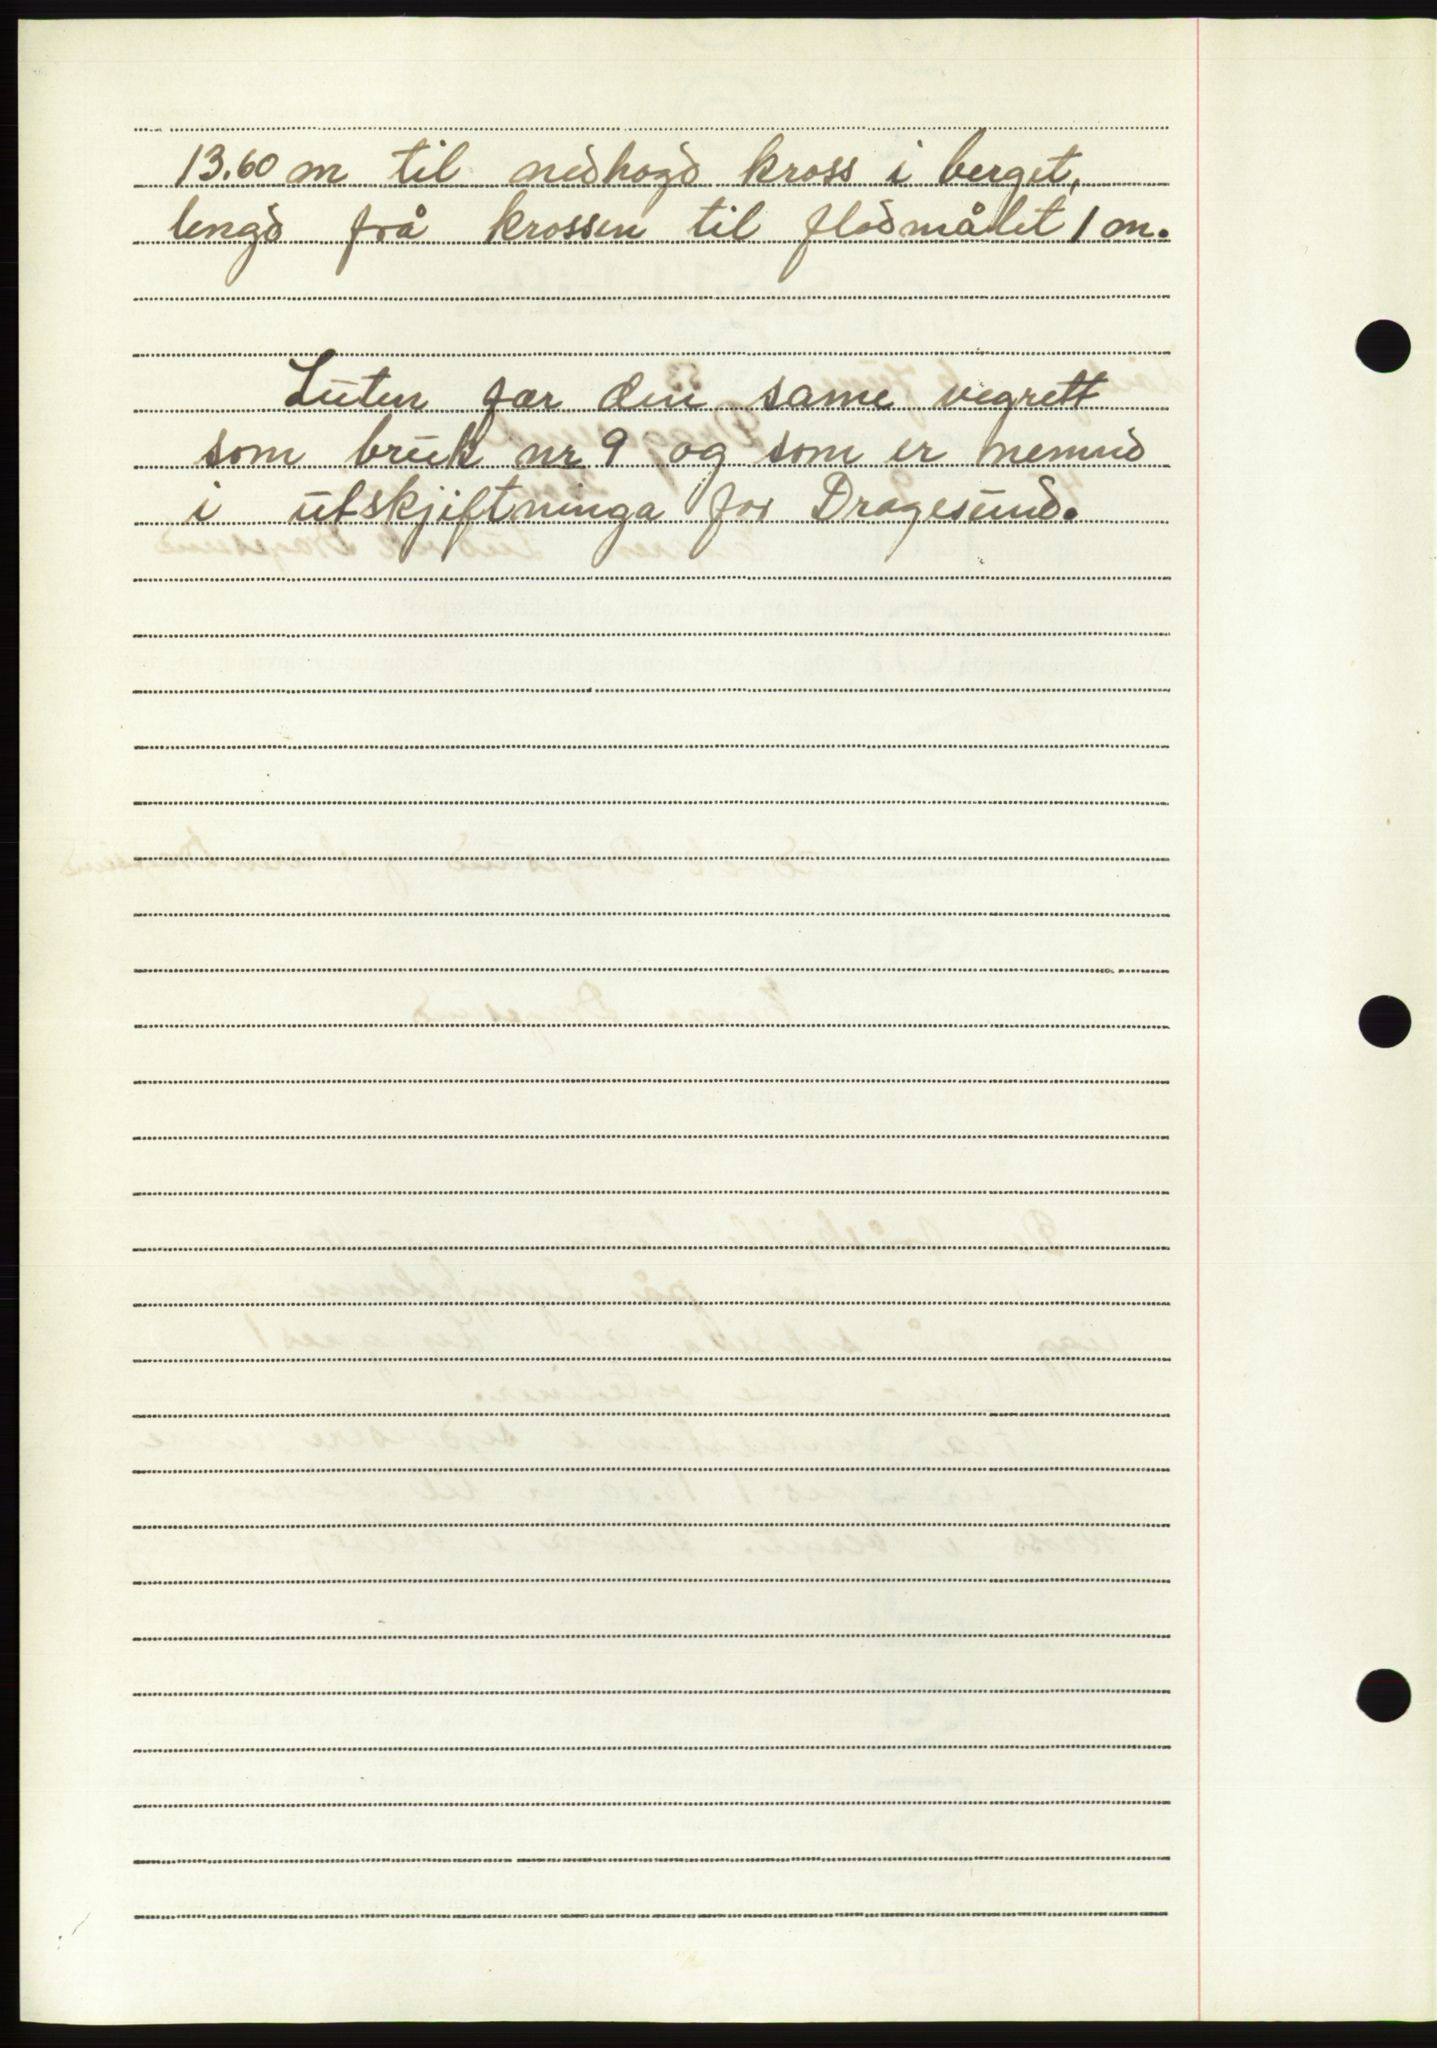 13.60 m til nedhogd kross i berget,
lengd frå krossen til flodmålet 1 m.
Luten far den same vegrett
som bruk nr 9 og som er nemnd
i utskjiftninga for Dragesund.